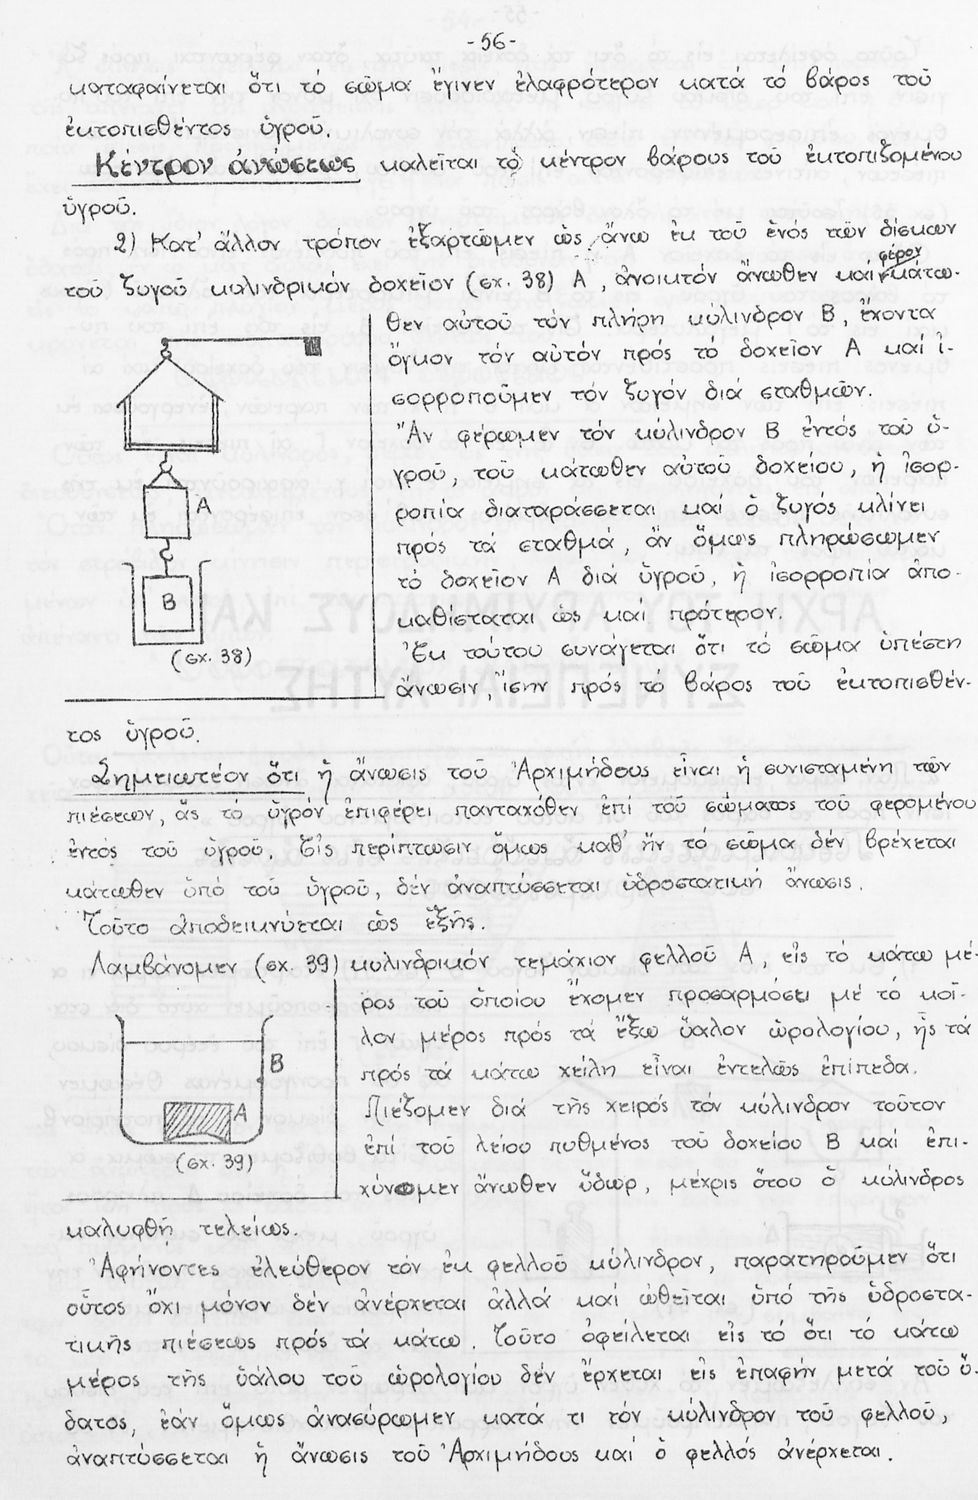 -56-
καταφαίνεται ὅτι τό σῶμα ἔγινεν ἐλαφρότερον κατά τό βάρος τοῦ
ἐκτοπισθέντος ὑγροῦ.
Κέντρον ἀνώσεως καλεῖται τό κέντρον βάρους τοῦ ἐκτοπιζομένου
ὑγροῦ.
2) Κατ' ἄλλον τρόπον ἐξαρτῶμεν ὡς ἄνω ἐκ τοῦ ἑνός τῶν δίσκων
τοῦ ζυγοῦ κυλινδρικόν δοχεῖον (σχ. 38) Α, ἀνοικτόν ἄνωθεν καί φέρον κάτω-
θεν αὐτοῦ τόν πλήρη κύλινδρον Β, ἔχοντα
ὄγκον τόν αὐτόν πρός τό δοχεῖον Α καί ἰ-
σορροποῦμεν τόν ζυγόν διά σταθμῶν.
Ἄν φέρωμεν τόν κύλινδρον Β ἐντός τοῦ ὑ-
γροῦ, τοῦ κάτωθεν αὐτοῦ δοχείου, ἡ ἰσορ-
ροπία διαταράσσεται καί ὁ ζυγός κλίνει
πρός τά σταθμά, ἄν ὅμως πληρώσωμεν
τό δοχεῖον Α διά ὑγροῦ, ἡ ἰσορροπία ἀπο-
καθίσταται ὡς καί πρότερον.
Ἐκ τούτου συνάγεται ὅτι τό σῶμα ὑπέστη
ἄνωσιν, ἴσην πρός τό βάρος τοῦ ἐκτοπισθέν-
Α
Β
(σχ. 38)
τος ὑγροῦ.
Σημειωτέον ὅτι ἡ ἄνωσις τοῦ Ἀρχιμήδους εἶναι ἡ συνισταμένη τῶν
πιέσεων, ἅς τό ὑγρόν ἐπιφέρει πανταχόθεν ἐπί τοῦ σώματος τοῦ φερομένου
ἐντός τοῦ ὑγροῦ. Εἰς περίπτωσιν ὅμως καθ' ἥν τό σῶμα δέν βρέχεται
κάτωθεν ὑπό τοῦ ὑγροῦ, δέν ἀναπτύσσεται ὑδροστατική ἄνωσις.
Τοῦτο ἀποδεικνύεται ὡς ἑξῆς.
Λαμβάνομεν (σχ. 39) κυλινδρικόν τεμάχιον φελλοῦ Α, εἰς τό κάτω μέ-
ρος τοῦ ὁποίου ἔχομεν προσαρμόσει μέ τό κοῖ-
λον μέρος πρός τά ἔξω ὕαλον ὡρολογίου, ἧς τά
πρός τά κάτω χείλη εἶναι ἐντελῶς ἐπίπεδα.
Πιέζομεν διά τῆς χειρός τόν κύλινδρον τοῦτον
ἐπί τοῦ λείου πυθμένος τοῦ δοχείου Β καί ἐπι-
χύνομεν ἄνωθεν ὕδωρ, μέχρις ὅτου ὁ κύλινδρος
Β
Α
(σχ. 39)
καλυφθῆ τελείως.
Ἀφήνοντες ἐλεύθερον τόν ἐκ φελλοῦ κύλινδρον, παρατηροῦμεν ὅτι
οὗτος ὄχι μόνον δέν ἀνέρχεται ἀλλά καί ὠθεῖται ὑπό τῆς ὑδροστα-
τικῆς πιέσεως πρός τά κάτω. Τοῦτο ὀφείλεται εἰς τό ὅτι τό κάτω
μέρος τῆς ὑάλου τοῦ ὡρολογίου δέν ἔρχεται εἰς ἐπαφήν μετά τοῦ ὕ-
δατος, ἐάν ὅμως ἀνασύρωμεν κατά τι τόν κύλινδρον τοῦ φελλοῦ,
ἀναπτύσσεται ἡ ἄνωσις τοῦ Ἀρχιμήδους καί ὁ φελλός ἀνέρχεται.